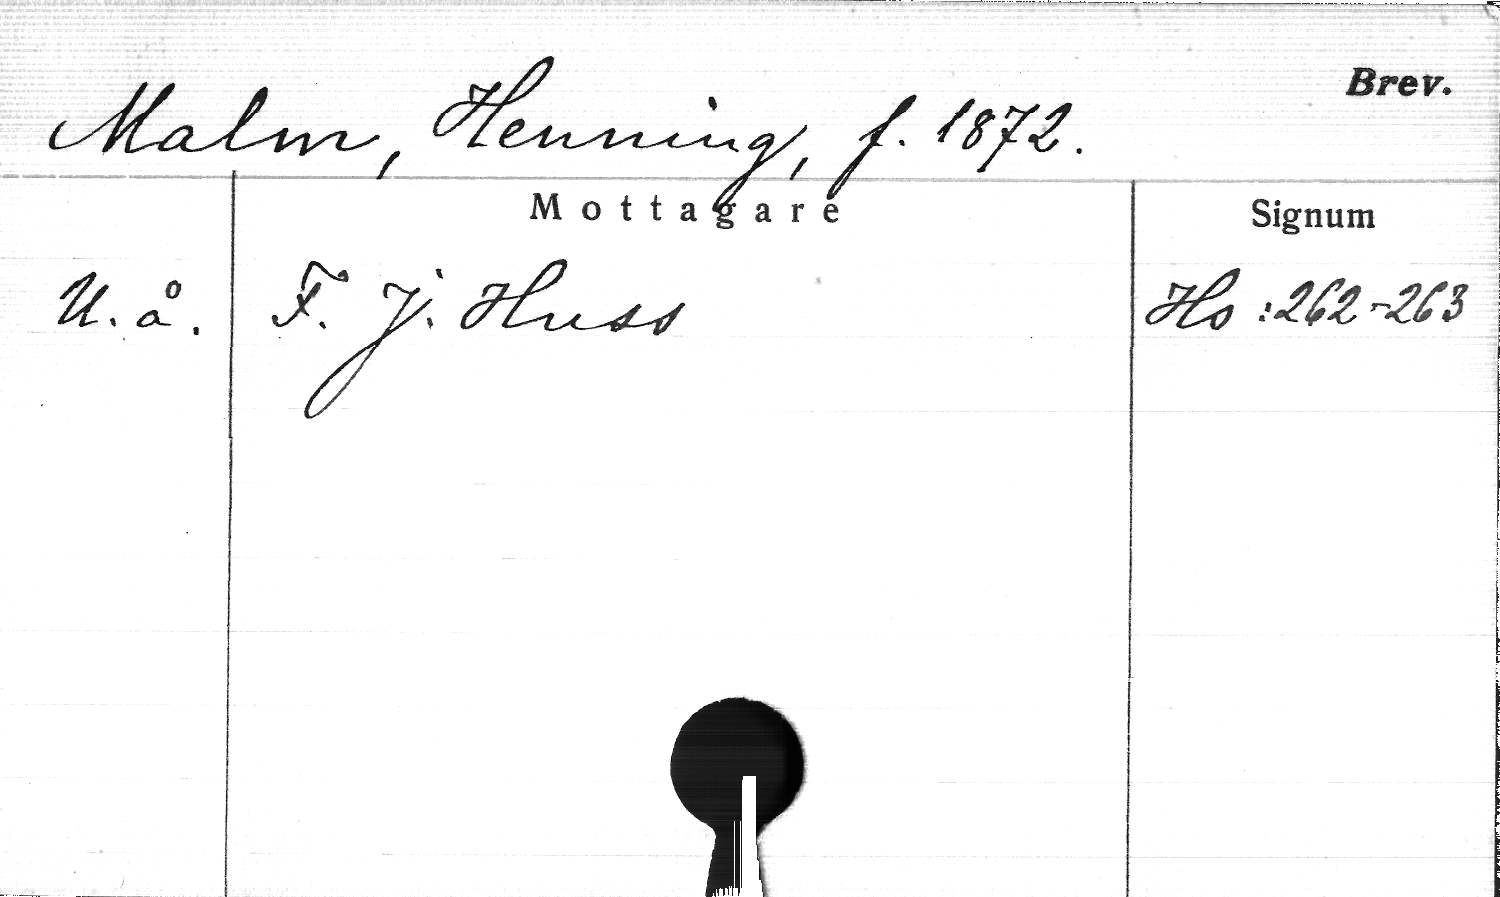 Brev.
Malm, Henning, f. 1872.
Mottagare
Signum
U. å. F. J. Huss Hs :262-263